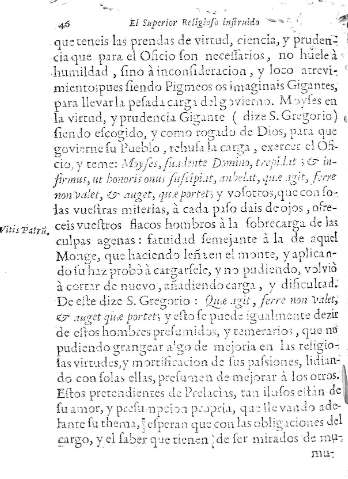 46 El Superior Religioso instruido
que teneis las prendas de virtud, ciencia, y pruden-
cia que para el Oficio son necessarios, no huele à
humildad, sino à inconsideracion, y loco atrevi-
miento; pues siendo Pigmeos os imaginais Gigantes,
para llevar la pesada carga del govierno. Moyses en
la virtud, y prudencia Gigante ( dize S. Gregorio)
siendo escogido, y como rogado de Dios, para que
govierne su Pueblo, rehusa la carga, exercer el Ofi-
cio, y teme: Moyses, suadente Domino, trepidat; & in-
firmus, ut honoris onus suscipiat, anhelat, quæ agit, ferre
non valet, & auget, quæ portet; y vosotros, que con so-
las vuestras miserias, à cada paso dais de ojos, ofre-
ceis vuestros flacos hombros à la sobrecarga de las
Vitis Patrũ.
culpas agenas: fatuidad semejante à la de aquel
Monge, que haciendo leña en el monte, y aplican-
do su haz probò à cargarsele, y no pudiendo, volviò
à cortar de nuevo, añadiendo carga, y dificultad.
De este dize S. Gregorio: Quæ agit, ferre non valet,
& auget quæ portet; y esto se puede igualmente dezir
de estos hombres presumidos, y temerarios, que no
pudiendo grangear algo de mejoria en las religio-
sas virtudes, y mortificacion de sus passiones, lidian-
do con solas ellas, presumen de mejorar à los otros.
Estos pretendientes de Prelacias, tan ilusos estàn de
su amor, y presumpcion propria, que llevando ade-
lante su thema, esperan que con las obligaciones del
cargo, y el saber que tienen de ser mirados de mu-
mu-